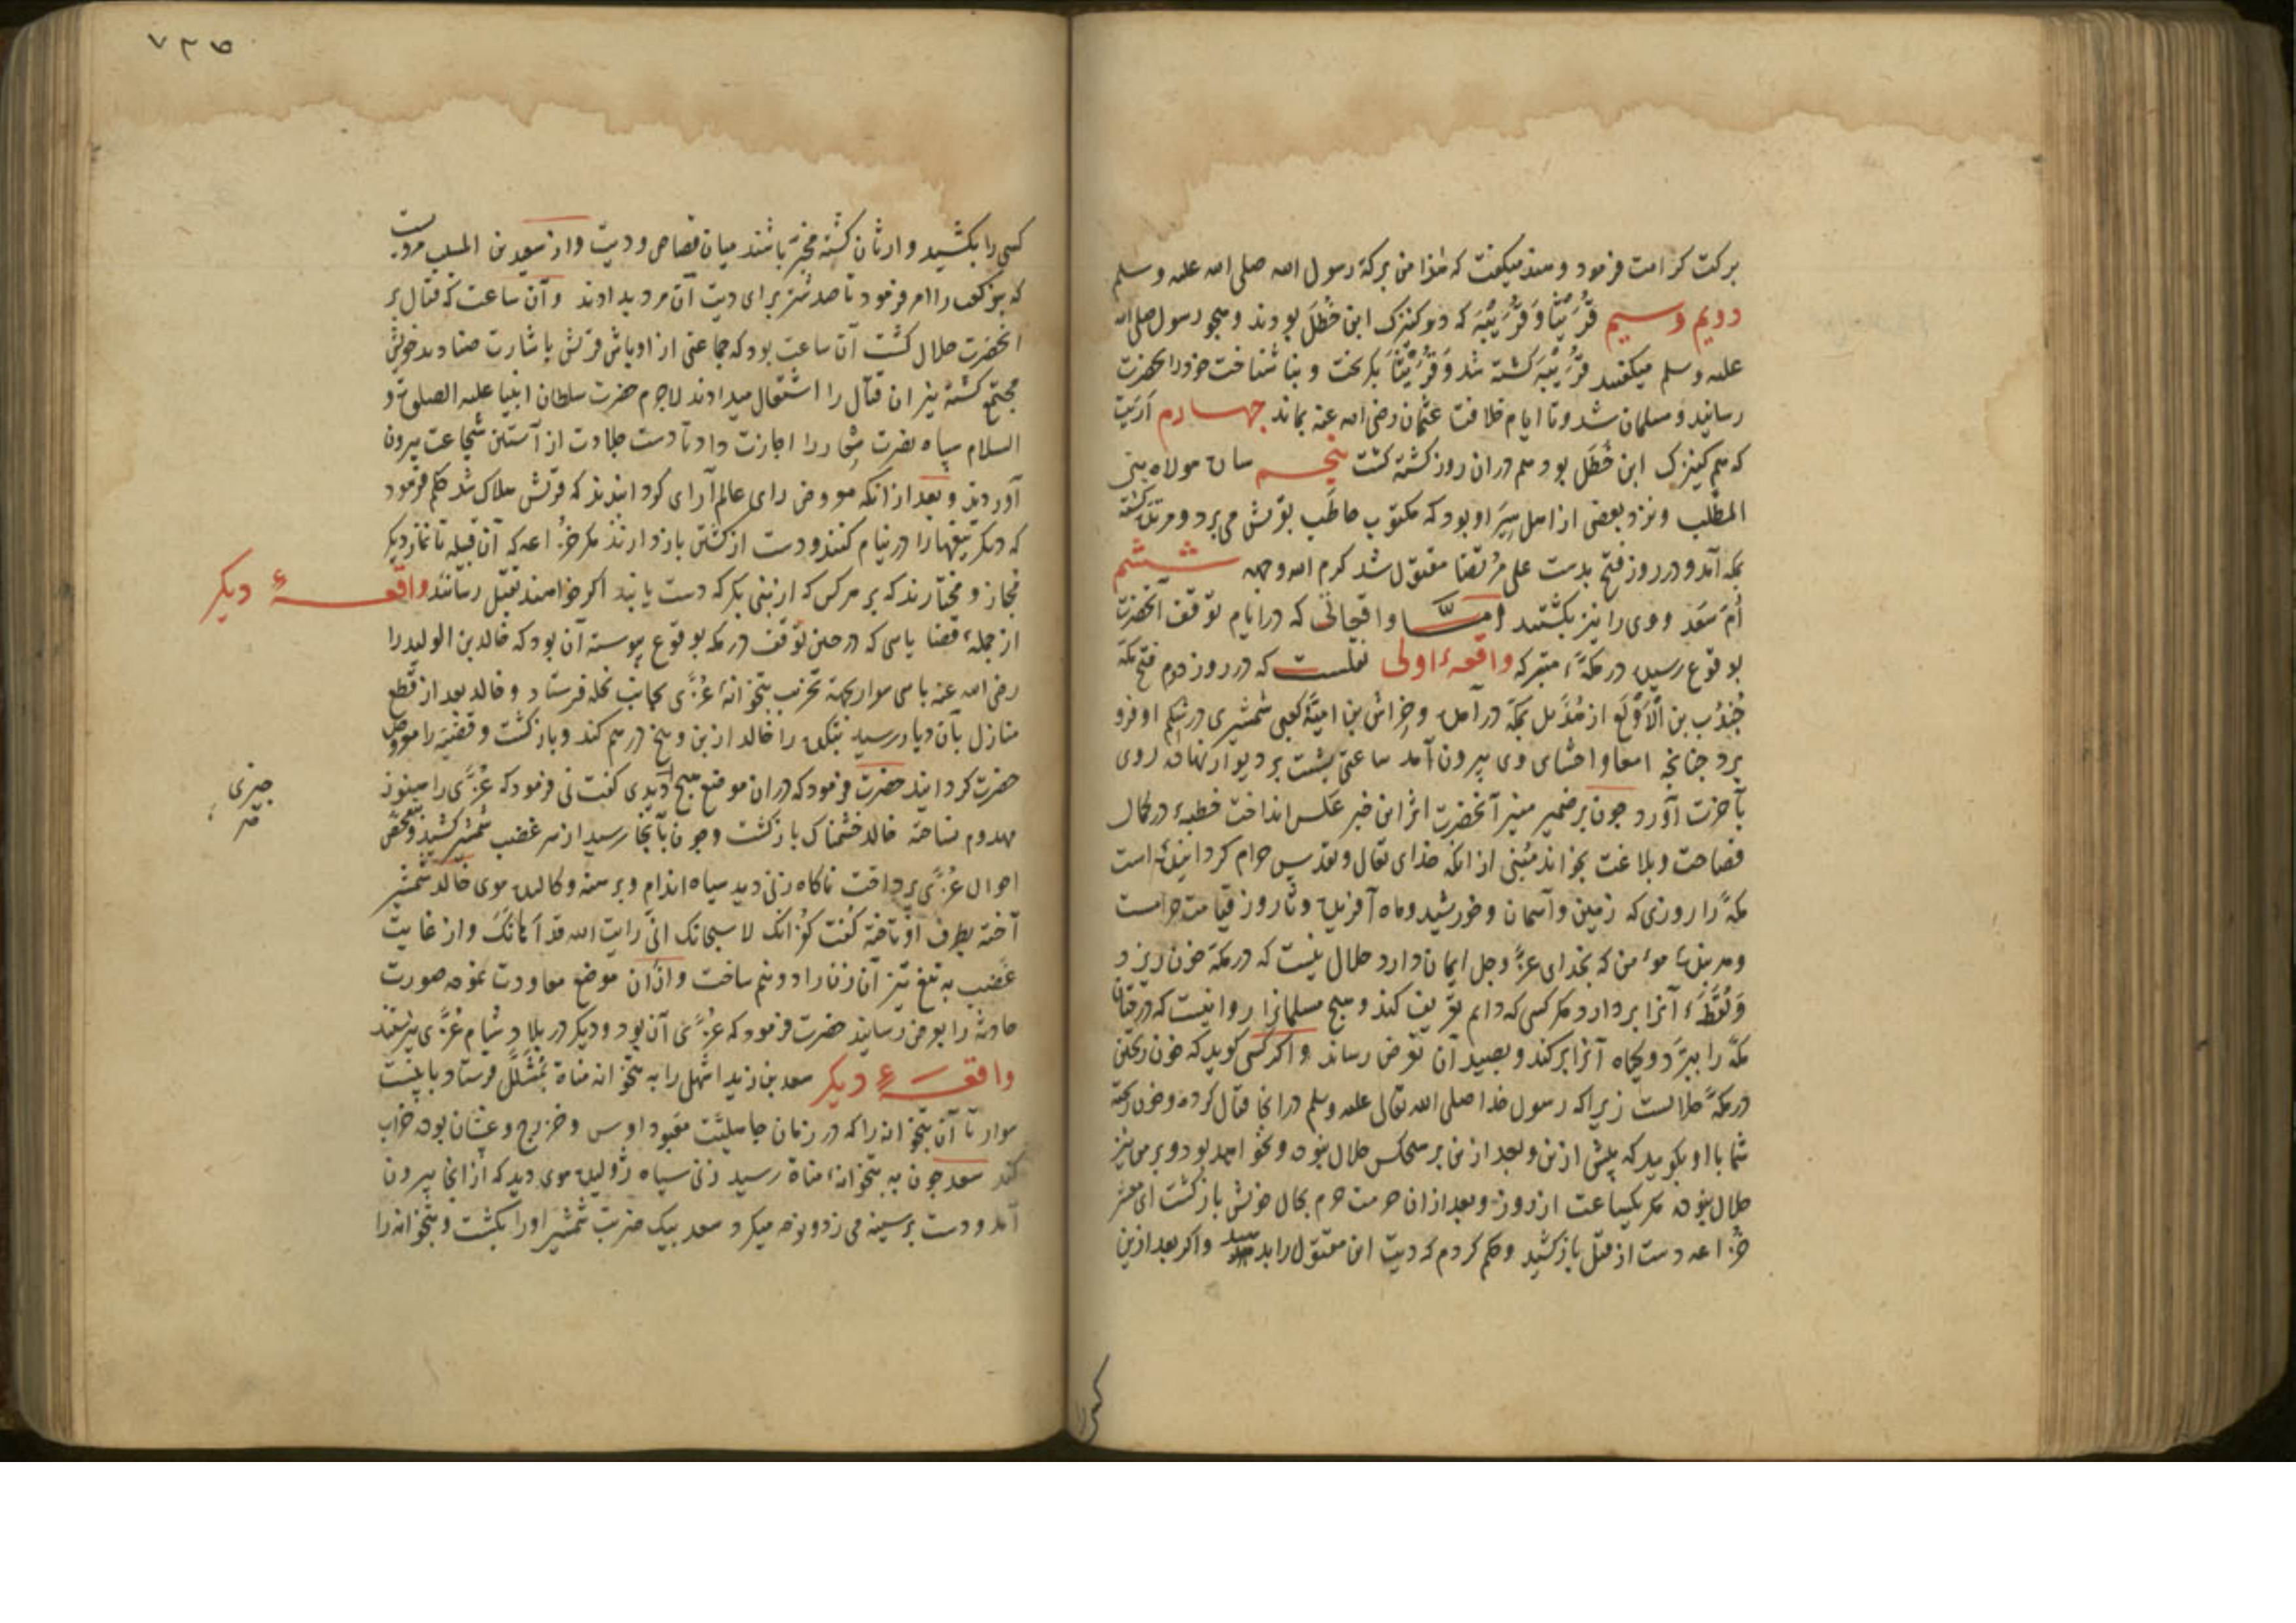 برکت کرامت فرمود و هند میکفت که هذا من برکة رسول الله صلی الله علیه و سلم
دویم و سیم قُرَیْنَا وَ قُرَیْبَه که دو کنیزک ابن خَطَل بودند و هجو رسول صلی الله
علیه و سلم میکفتند قُرَیْبَه کشته شد وَ قُرَیْنَا بکریخت و بناشناخت خود را بحضرت
رسانید و مسلمان شد و تا ایام خلافت عثمان رضی الله عنه بماند چهارم اَرنَب
که هم کنیزک ابن خَطَل بود هم دران روز کشته کشت پنجم ساره مولاه بنی
المطّلب و نزد بعضی از اهل سِیَر او بود که مکتوب حاطب بقریش می برد و مرتد کشته
بمکه آمد و در روز فتح بدست علی مرتضا مقتول شد کرم الله وجهه ششم
اُمّ سَعَد و وی را نیز بکشتند امّا واقعاتی که در ایام توقف آنحضرت
بوقوع رسید در مکّهٔ متبرکه واقعهٔ اولی نقلست که در روز دوم فتح مکّه
جُنْدُب بن الْاَوْلَع از هُذَیل بمکّه در آمد و خراش بن امیّه کعبی شمشیری در شکم او فرو
برد چنانچه امعا و احشای وی بیرون آمد ساعتی پشت بر دیوار نهاده روی
بآخرت آورد چون بر ضمیر منیر آنحضرت اثر این خبر عکس انداخت خطبهٔ در کمال
فصاحت و بلاغت بخواند مُبنی از انکه خدای تعالی و تقدس حرام کردانیده است
مکّه را روزی که زمین و آسمان و خورشید و ماه آفریده و تا روز قیامت حرامست
و هر بندهٔ مومن که بخدای عزّ و جل ایمان دارد حلال نیست که در مکّه خون ریزد
وَ لُقَطَهٔ آنرا بردارد مکر کسی که دایم تعریف کند و هیچ مسلمانرا روا نیست که درختان
مکّه را ببرَد و کیاه آنرا برکند و بصید آن تعرض رساند و اکر کسی کوید که خون ریختن
در مکّه حلالست زیرا که رسول خدا صلی الله تعالی علیه و سلم در انجا قتال کرده و خون ریخته
شما با او بکویید که پیش ازین و بعد از من بر هیچکس حلال نبوده و نخواهد بود و بر من نیز
حلال نبوده مکر یکساعت از روز و بعد از ان حرمت حرم بحال خویش باز کشت ای معشر
خزاعه دست از قتل باز کشید و حکم کردم که دیت این مقتول را بدهید و اکر بعد ازین
کسی را
۷۳۵
کسی را بکشید وارثان کشته مخیّر باشند میان قصاص و دیت و از سعید بن المسیب مرویست
که بنو کعب را امر فرمود تا صد شتر برای دیت آن مرد بدادند و آن ساعت که قتال بر
آنحضرت حلال کشت آن ساعت بود که جماعتی از اوباش قریش باشارت صنادید خویش
مجتمع کشته نیران قتال را اشتعال میدادند لاجرم حضرت سلطان انبیا علیه الصلوة و
السلام سپاه نصرت شعار را اجازت داد تا دست جلادت از آستین شجاعت بیرون
آوردند و بعد از انکه معروض رای عالم آرای کردانیدند که قریش هلاک شد حکم فرمود
که دیکر تیغها را در نیام کنند و دست از کشتن باز دارند مکر خزاعه که آن قبیله تا نماز دیکر
مجاز و مختارند که بر هر کس که از بنی بکر که دست یابند اکر خواهند بقتل رسانند واقعهٔ دیکر
از جملهٔ قضایایی که در حین توقف در مکه بوقوع پیوسته آن بود که خالد بن الولید را
رضی الله عنه با سی سوار بجهة تخریب بتخانهٔ عُزّی بجانب نخله فرستاد و خالد بعد از قطع
منازل بآن دیار رسید بتکده را خالد از بن و بیخ در هم کند و باز کشت و قضیّه را معروض
حضرت کردانید حضرت فرمود که دران موضع هیچ دیدی کفت نی فرمود که عُزّی را هنوز
چیزی
مهدوم نساخته خالد خشمناک باز کشت و چون بآنجا رسید از سر غضب شمشیر کشید و بتفحّص
احوال عُزّی پرداخت ناکاه زنی دید سیاه اندام و برهنه و کالیده موی خالد شمشیر
آخته بطرف او تاخته کفت کُفرانک لا سبحانک انّی رایت الله قد اَهَانَکَ و از غایت
غضب به تیغ تیز آن زن را دو نیم ساخت و ازان موضع معاودت نموده صورت
حادثه را بعرض رسانید حضرت فرمود که عُزّی آن بود و دیکر در بلاد شام عُزّی نپرستند
واقعهٔ دیکر سعد بن زید اشهلی را به بتخانه مناة بمُشَلَّل فرستاد با بیست
سوار تا آن بتخانه را که در زمان جاهلیّت معبود اوس و خزرج و غسّان بوده خراب
کند سعد چون به بتخانهٔ مناة رسید زنی سیاه ژولیده موی دید که از انجا بیرون
آمد و دست بر سینه می زد و نوحه میکرد سعد بیک ضربت شمشیر او را بکشت و بتخانه را